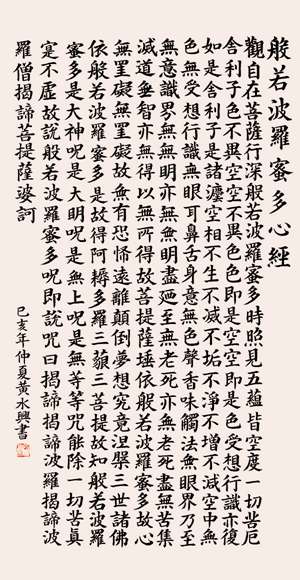 般若波羅蜜多心經
觀自在菩薩行深般若波羅蜜多時照見五蘊皆空度一切苦厄
舍利子色不異空空不異色色即是空空即是色受想行識亦復
如是舍利子是諸灋空相不生不滅不垢不淨不增不減空中無
色無受想行識無眼耳鼻舌身意無色聲香味觸法無眼界乃至
無意識界無無明亦無無明盡廼至無老死亦無老死盡無苦集
滅道無智亦無得以無所得故菩提薩埵依般若波羅蜜多故心
無罣礙無罣礙故無有恐怖遠離顛倒夢想究竟涅槃三世諸佛
依般若波羅蜜多是故得阿耨多羅三藐三菩提故知般若波羅
蜜多是大神呪是大明呪是無上呪是無等等呪能除一切苦真
寔不虛故說般若波羅蜜多呪即說呪曰揭諦揭諦波羅揭諦波
羅僧揭諦菩提薩婆訶
己亥年仲夏黃水興書